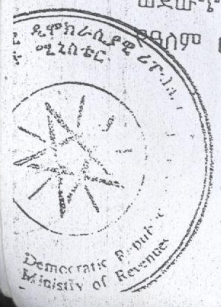 ዓለም
ዲሞክራሲያዊ ሪፐብሊክ
ሚኒስቴር
Democratic Republic
Ministry of Revenues